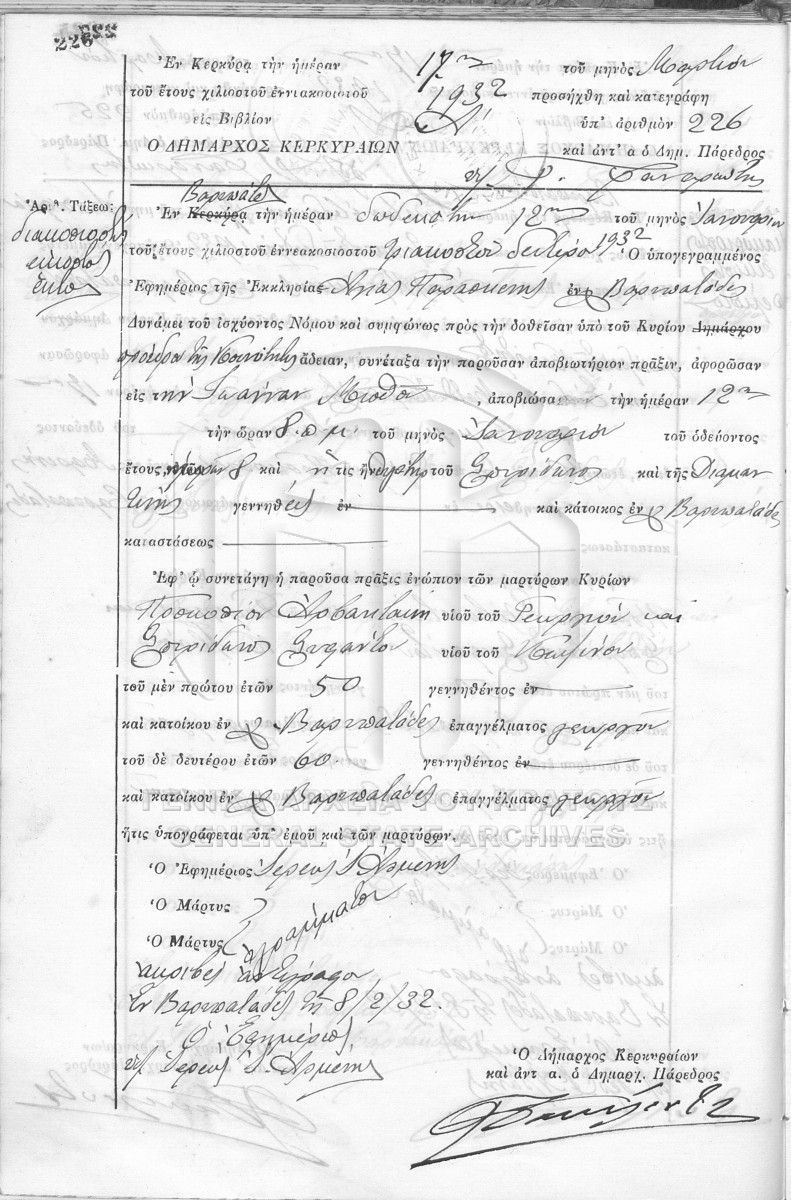 226
Ἐν Κερκύρᾳ τὴν ἡμέραν 17ην τοῦ μηνὸς Μαρτίου
τοῦ ἔτους χιλιοστοῦ ἐννιακοσιοστοῦ 1932 προσήχθη καὶ κατεγράφη
εἰς Βιβλίον Α' ὑπ' ἀριθμὸν 226
Ο ΔΗΜΑΡΧΟΣ ΚΕΡΚΥΡΑΙΩΝ καὶ ἀντ' α ὁ Δημ. Πάρεδρος
Βαρυπατάδες
Ἀρι. Τάξεως
διακοσιοστὸς
εἰκοστὸς
ἕκτος
Ἐν Κερκύρᾳ τὴν ἡμέραν δωδεκάτην 12ην τοῦ μηνὸς Ἰανουαρίου
τοῦ ἔτους χιλιοστοῦ ἐννεακοσιοστοῦ τριακοστοῦ δευτέρου 1932 Ὁ ὑπογεγραμμένος
Ἐφημέριος τῆς Ἐκκλησίας Ἁγίας Παρασκευῆς ἐν Βαρυπατάδες
Δυνάμει τοῦ ἰσχύοντος Νόμου καὶ συμφώνως πρὸς τὴν δοθεῖσαν ὑπὸ τοῦ Κυρίου Δημάρχου
προέδρου τῆς Κοινότητος ἄδειαν, συνέταξα τὴν παροῦσαν ἀποβιωτήριον πρᾶξιν, ἀφορῶσαν
εἰς τὴν Ἰωάνναν , ἀποβιώσα τὴν ἡμέραν 12ην
τὴν ὥραν 8 π.μ. τοῦ μηνὸς Ἰανουαρίου τοῦ ὁδεύοντος
ἔτους, 8 καὶ ἥτις ἦν θυγάτηρ τοῦ Σπυρίδωνος καὶ τῆς Διαμαν
τίνης γεννηθεῖς ἐν καὶ κάτοικος ἐν Βαρυπατάδες
καταστάσεως
Ἐφ' ᾧ συνετάγη ἡ παροῦσα πρᾶξις ἐνώπιον τῶν μαρτύρων Κυρίων
Προκοπίου Ἀρβανιτάκη υἱοῦ τοῦ Γεωργίου καὶ
Σπυρίδωνος υἱοῦ τοῦ
τοῦ μὲν πρώτου ἐτῶν 50 γεννηθέντος ἐν
καὶ κατοίκου ἐν Βαρυπατάδες ἐπαγγέλματος γεωργοῦ
τοῦ δὲ δευτέρου ἐτῶν 60 γεννηθέντος ἐν
καὶ κατοίκου ἐν Βαρυπατάδες ἐπαγγέλματος γεωργοῦ
ΓΕΝΙΚΑ ΑΡΧΕΙΑ ΤΟΥ ΚΡΑΤΟΥΣ
GENERAL STATE ARCHIVES
ἥτις ὑπογράφεται ὑπ' ἐμοῦ καὶ τῶν μαρτύρων.
Ὁ Ἐφημέριος Ἱερεὺς
Ὁ Μάρτυς
Ὁ Μάρτυς ἀγράμματοι
ἀκριβὲς ἀντίγραφον
Ἐν Βαρυπατάδες τῇ 8/2/32.
Ὁ Ἐφημέριος
Ἱερεὺς
Ὁ Δήμαρχος Κερκυραίων
καὶ ἀντ α. ὁ Δημαρχ. Πάρεδρος